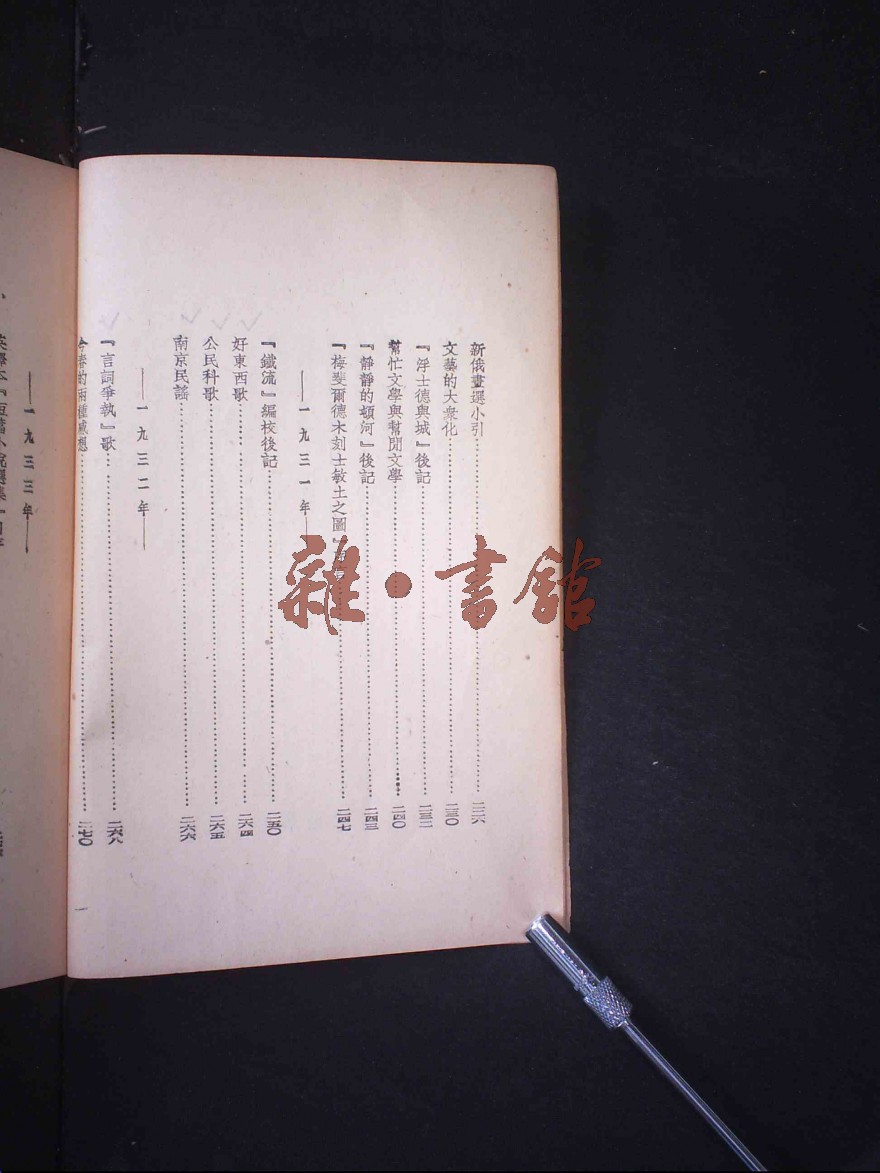 新俄畫選小引……二二六
文藝的大衆化……二三〇
『浮士德與城』後記……二三二
幫忙文學與幫閒文學……二四〇
『靜靜的頓河』後記……二四三
『梅斐爾德木刻士敏土之圖』……二四七
——一九三一年——
『鐵流』編校後記……二五〇
好東西歌……二六四
公民科歌……二六五
南京民謠……二六六
——一九三二年——
『言詞爭執』歌……二六八
今春的兩種感想……二七〇
——一九三三年——
英譯本『短篇小說選集』自序
雜·書館